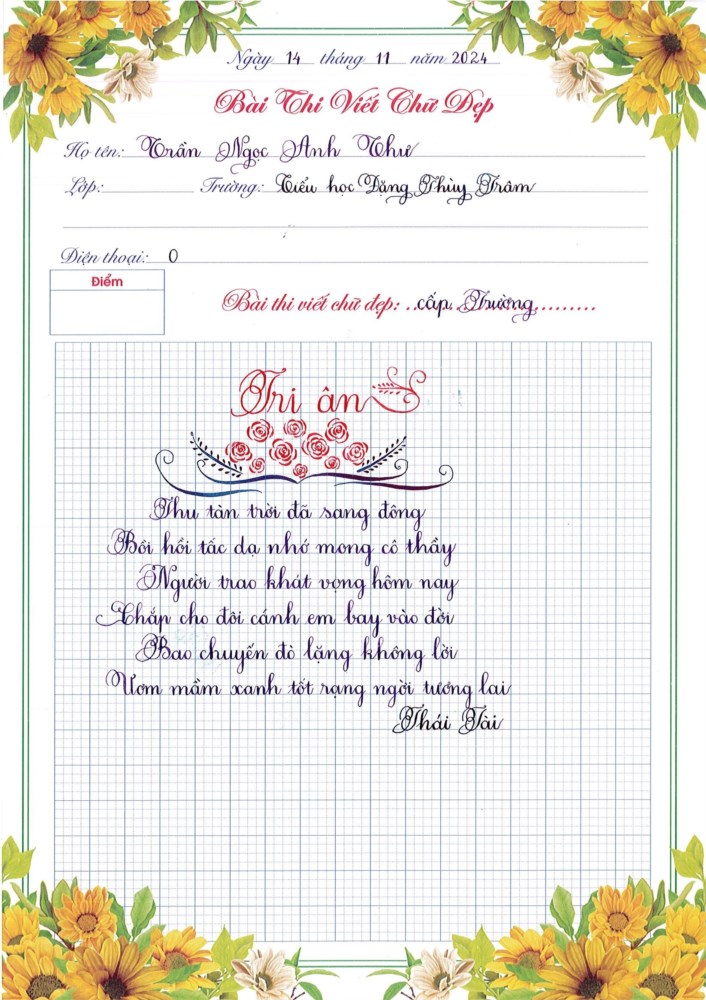 Ngày 14 tháng 11 năm 2024
Bài Thi Viết Chữ Đẹp
Họ tên: Trần Ngọc Anh Thư
Lớp: Trường: Tiểu học Đặng Thùy Trâm
Điện thoại: 0
Điểm
Bài thi viết chữ đẹp: ..cấp Trường.........
Tri ân
Thu tàn trời đã sang đông
Bồi hồi tấc dạ nhớ mong cô thầy
Người trao khát vọng hôm nay
Chắp cho đôi cánh em bay vào đời
Bao chuyến đò lặng không lời
Ươm mầm xanh tốt rạng ngời tương lai
Thái Tài